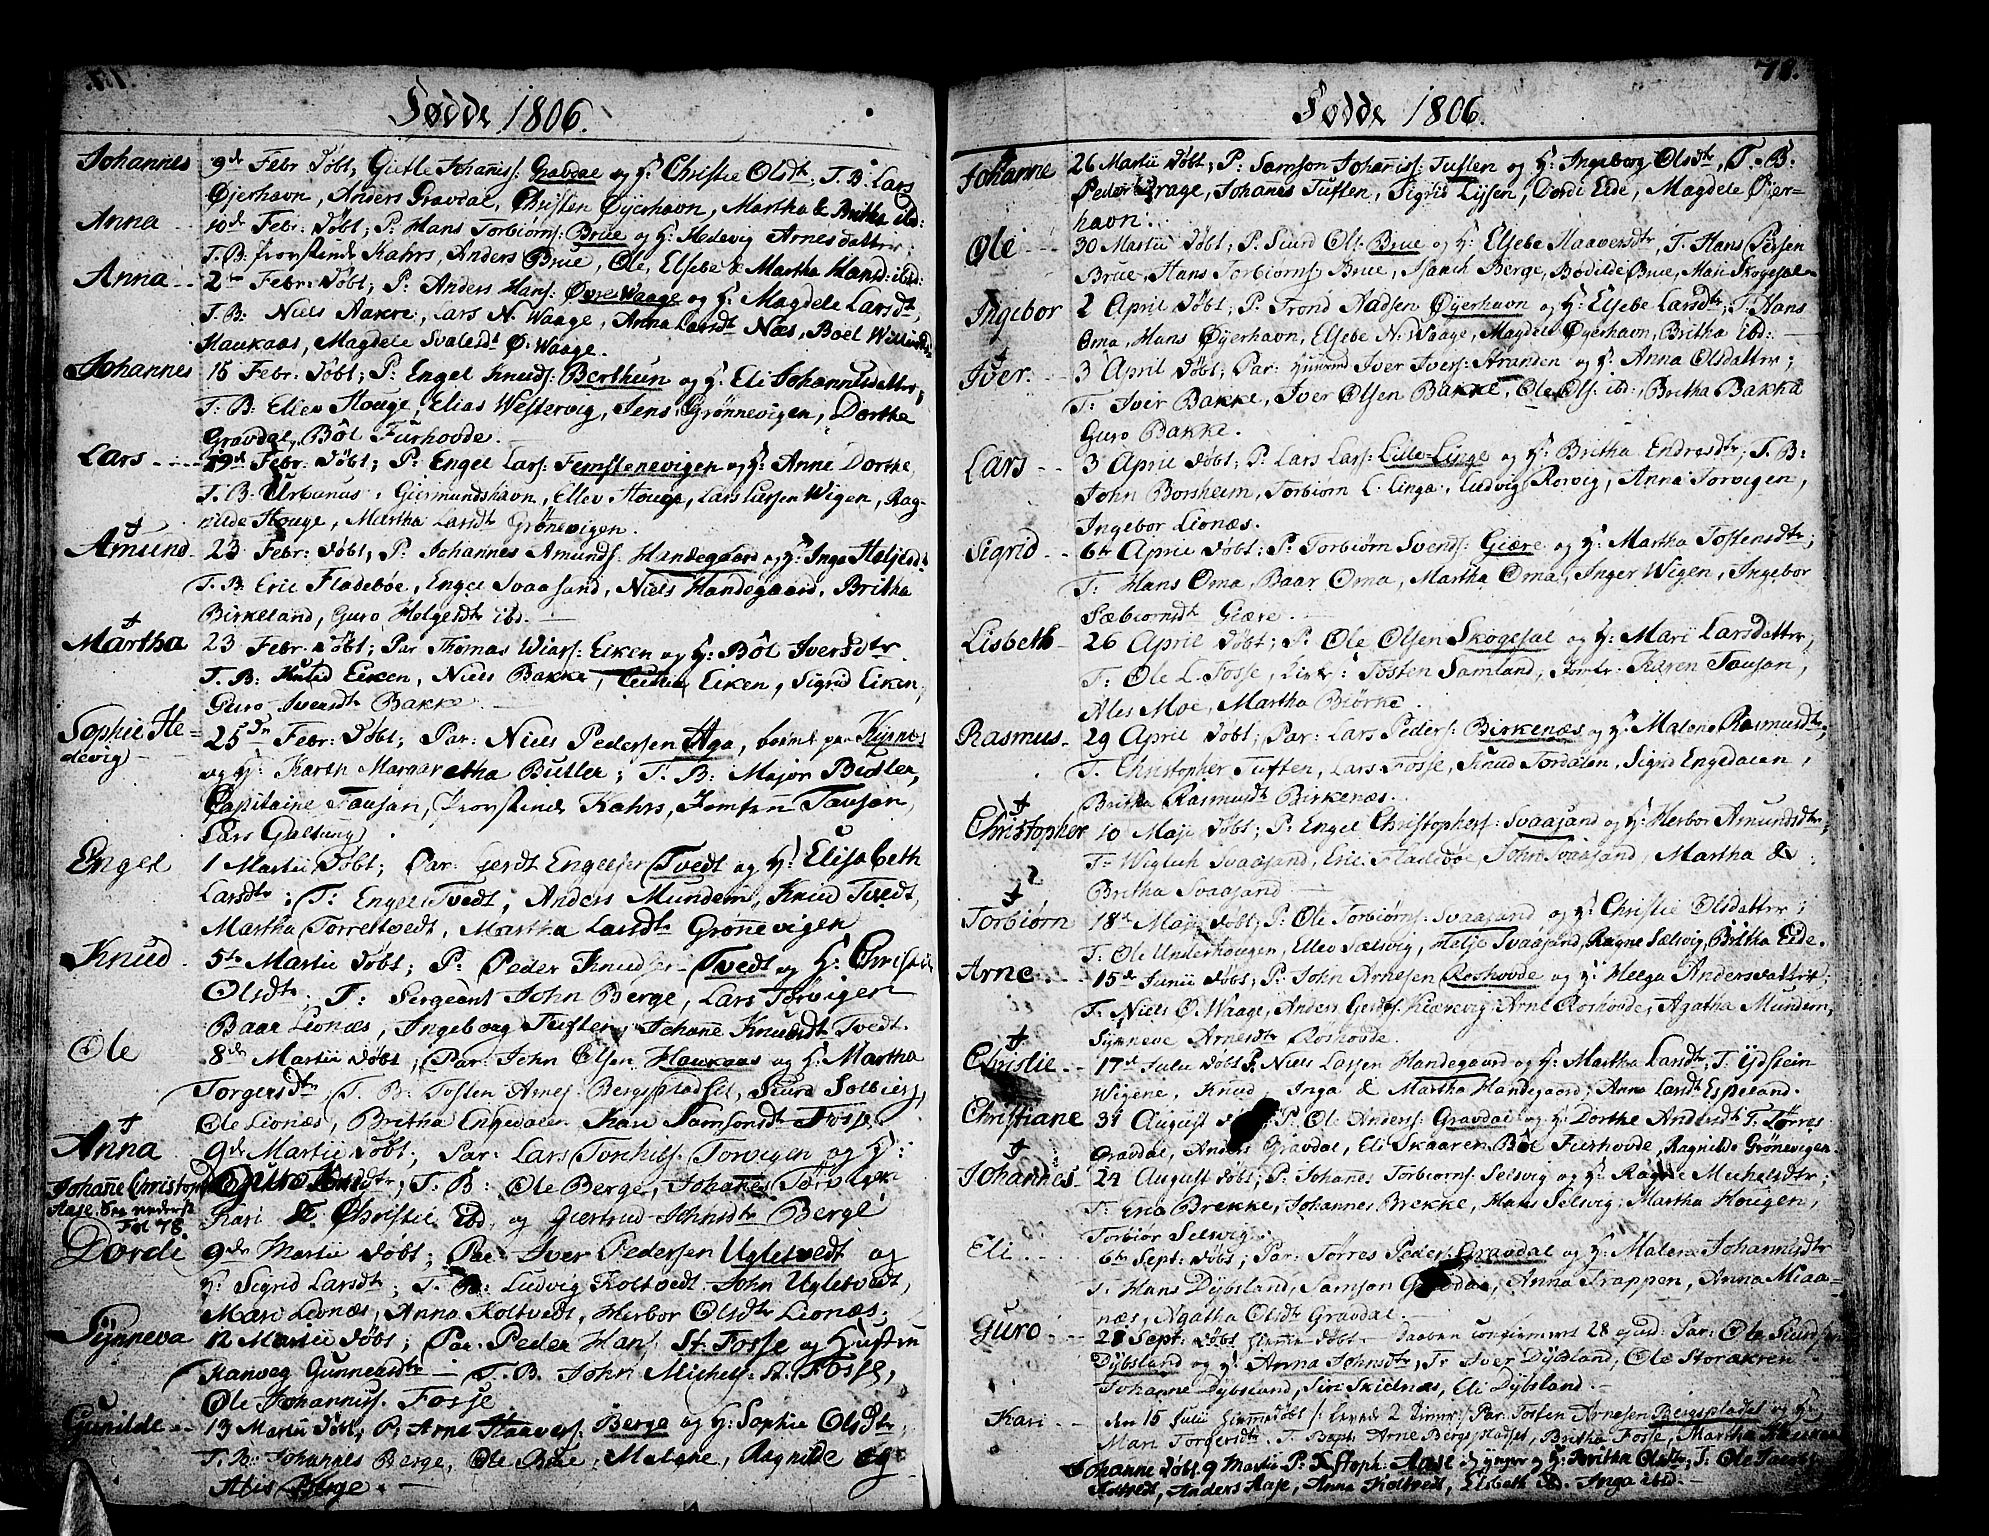 Fødde 1806.
Johannes 9de Febr Døbt, Gietle Johaniss: Gravdae og H: Christie Olsdtr T. B: Lars
Øjerhavn, Anders Gravdal, Christen Øyerhavn, Martha & Britha ibd:
Anna 10de Febr: Døbt; P: Hans Torbiørns: Brue og H: Hedevig Arnesdatter
T. B. Provstinde Kahrs, Anders Brue, Ole, Elsebe & Martha Hansd: ibd:
Anna 2den Febr: Døbt; P: Anders Hans: Øvre Waage og H: Magdele Larsdtr,
T. B: Niels Aakre, Lars N. Waage, Anna Larsdtr Næs, Boel
Haukaas, Magdele Svalesdt Ø: Waage.
Johannes 15 Febr: Døbt; P: Engel Knuds: Berthun og H: Eli Johannesdatter;
T. B: Ellev Houge, Elias Westervig, Jens Grønnevigen, Dorthe
Gravdal, Bøl Furhovde.
Lars 19de Febr: Døbt; P: Engel Lars: Femstenevigen og H: Anne Dorthe,
T. B: Urbanus Giermundshavn, Ellev Houge, Lars Larsen Wigen, Rag-
nilde Houge, Martha Larsdtr Grønevigen.
Amund 23 Febr: Døbt; P: Johannes Amunds: Handegaard og H: Inga Haljesdtr
T. B: Eric Fladebøe, Engel Svaasand, Niels Handegaard, Britha
Birkeland, Guro Helgesdtr ibd.
Martha 23 Febr: Døbt; Par Thomas Wiars: Eiken og H: Bøl Iversdtr
T. B: Knud Eiken, Niels Bakke, Cecilia Eiken, Sigrid Eiken,
Guro Svensdtr Bakke
Sophie He- 25de Febr: Døbt; Par: Niels Pedersen Aga, boende paa Kynnæs
devig og H: Karen Margaretha Butler; T. B: Major Bidler,
Capitaine Tausan, Provstinde Kahrs, Jomfru Tausan,
Lars Galtung.
Engel 1 Martii Døbt; Par: Gerdt Engelsen Tvedt og H: Elisabeth
Larsdtr; T: Engel Tvedt, Anders Mundem, Knud Tvedt,
Martha Torrettvedt, Martha Larsdtr Grønevigen
Knud 5te Martii Døbt; P: Peder Knudsen Tvedt og H: Christie
Olsdtr; T: Sergeant John Berge, Lars Torvigen
Baar Lionæs, Ingeborg Tuften, Johane Knudsdt Tvedt.
Ole 8de Martii Døbt; Par: John Olsen Haukaas og H: Martha
Torgersdtr; T. B: Tosten Arnes: Bergspladset, Siura Solbierg,
Ole Lionæs, Britha Engedalen Kari Samsonsdtr Fosse
Anna 9de Martii Døbt; Par: Lars Torchils: Torvigen og H:
Johane Christoph Guro dtr, T. B: Ole Berge, Johanes Torvigen
Aase. See nederst Kari & Christie ibd, og Giertrud Johnsdtr Berge
Fol 78.
Dordi 9de Martii Døbt; Par Iver Pedersen Ugletvedt og
H: Sigrid Larsdtr; T. B: Ludvig Koltvedt, John Ugletvedt,
Mari Lionæs, Anna Koltvedt, Herbor Olsdtr Lionæs.
Synneva 12 Martii Døbt; Par: Peder Hans: St: Fosse og Hustru
Ranveg Gunnersdtr T. B. John Michels: St. Fosse,
Ole Johanniss. Fosse
Gunilde 13 Martii Døbt; P: Arne Haavers: Berge og H: Sophie Olsdtr,
T. B: Johannes Berge, Ole Brue, Malene, Ragnilde og
Alis Berge.
78.
Fødde 1806.
Johanne 26 Martii Døbt; P: Samson Johaniss: Tuften og H: Ingeborg Olsdtr, T. B.
Peder Drage, Johanes Tuften, Sigrid Lyssen, Dordi Eide, Magdele Øjer-
havn.
Ole 30 Martii Døbt; P. Siurd Ols. Brue og H: Elsebe Haaversdtr, T. Hans Persen
Brue, Hans Torbiørns Brue, Berge, Bodilde Brue, Mari Skogesal
Ingebor 2 April Døbt; P: Trond Aadsen Øyerhavn og H: Elsebe Larsdtr; T: Hans
Oma, Hans Øyerhavn, Elsebe N: Waage, Magdele Øyerhavn, Britha ibd:
Iver. 3 April Døbt; Par: Huusmd Iver Ivers: Stranden og H: Anna Olsdatter;
T: Iver Bakke, Iver Olsen Bakke, Ole Ols: ibd: Britha Bakke
Guro Bakke.
Lars 3 April Døbt; P. Lars Lars: Lille-Linge og H: Britha Endresdtr; T. B:
John Borsheim, Torbiørn L. Linga, Ludvig Rorvig, Anna Torvigen,
Ingebor Lionæs.
Sigrid 6te April Døbt; P: Torbiørn Svends: Giære og H: Martha Tostensdtr;
T: Hans Oma, Baar Oma, Martha Oma, Inger Wigen, Ingebor
Sæbiornsdtr Giære.
Lisbeth 26 April Døbt; P. Ole Olsen Skogesal og H: Mari Larsdatter,
T: Ole L. Fosse, Tosten Samland, Jomfr: Karen Tausan,
Ales Moe, Martha Biørke.
Rasmus 29 April Døbt; Par: Lars Peders: Birkenæs og H: Malene Rasmusdtr;
T. Christopher Tuften, Lars Fosse, Knud Tordalen, Sigrid Engedalen,
Britha Rasmusdt Birkenæs.
Christopher 10 Maji Døbt; P. Engel Christophers: Svaasand og H: Herbor Amundsdtr;
T: Wigluh Svaasand, Eric Fladebøe, John Svaasand, Martha &
Britha Svaasand
Torbiørn 18de Maji Døbt; P: Ole Torbiørns: Svaasand og H: Christie Olsdatter;
T. Ole Underhougen, Ellev Sælsvig, Haljo Svaasand, Ragne Sælsvig, Britha Eide.
Arne 15de Junii Døbt; P. John Arnesen Roshovde og H: Helga Andersdatter;
T. Niels Ø. Waage, Anders Kiærevig Arne Roshovde, Agatha Mundem,
Synneve Arnesdtr Roshovde.
Christie 17de Julii Døbt P. Niels Lassen Handegaard og H: Martha Larsdtr; T. Ydstein
Wigene, Knud, Inga & Martha Handegaard, Anne Larsdt Espeland.
Christiane 31 August P. Ole Anders: Gravdal og H: Dorthe Andersdtr T. Tørres
Gravdal, Anders Gravdal, Eli Skaaren Bøl Fierhovde, Ragnilde Grønevigen.
Johannes 24 August Døbt; P: Johanes Torbiorns: Selsvig og H: Ragne Michelsdtr;
T: Eric Brekke, Johannes Brekke, Hans Selsvig, Martha Hougen,
Torbiør Selsvig.
Eli 6te Sept: Døbt; Par: Tørres Peders: Gravdal og H: Malene Johannesdtr
T. Hans Dybsland, Samson Gravdal, Anna Trappen, Anna Miaa-
næs, Agatha Olsdtr Gravdal.
Guro 28 Sept: Døbt hiemmedøbt Daaben confirmert 28 ejusd: Par: Ole
Dybsland og H: Anna Johnsdtr; T: Iver Dybsland, Ole Storakren
Johanne Dybsland, Siri Skielnæs, Eli Dybsland.
Kari den 15 Julii hiemmedøbt levede 2 Timer Par: Tosten Arnesen Bergspladset og H:
Mari Torgersdtr. T. Bapt: Arne Bergspladset, Britha Fosse, Martha
Johanne Døbt 9 Martii P: Xstoph: Aase d: yngre og H: Britha Olsdtr, T: Ole
Koltvedt, Anders Aase, Anna Koltvedt, Elsbeth & Inga ibid.